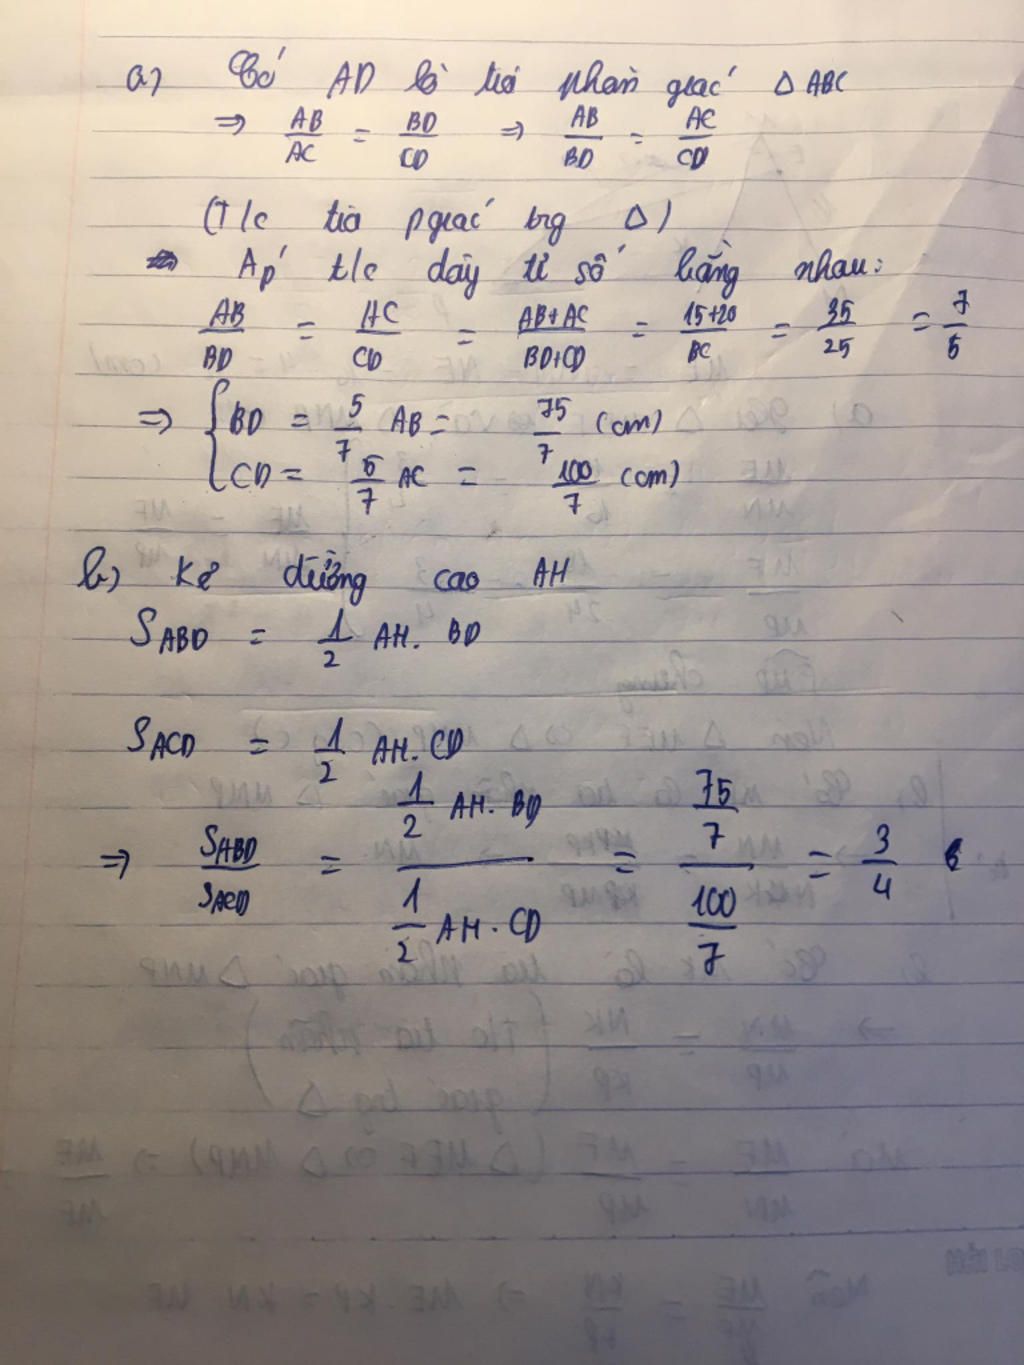 a) Có AD là tia phân giác Δ ABC
⇒ AB/AC = BD/CD ⇒ AB/BD = AC/CD
(T/c tia pgiác trg Δ)
Áp t/c dãy tỉ số bằng nhau:
AB/BD = AC/CD = AB+AC/BD+CD = 15+20/BC = 35/25 = 7/5
⇒ { BD = 5/7 AB = 75/7 (cm)
CD = 5/7 AC = 100/7 (cm)
b) Kẻ đường cao AH
S_ABD = 1/2 AH. BD
S_ACD = 1/2 AH. CD
⇒ S_ABD/S_ACD = 1/2 AH. BD / 1/2 AH. CD = 75/7 / 100/7 = 3/4